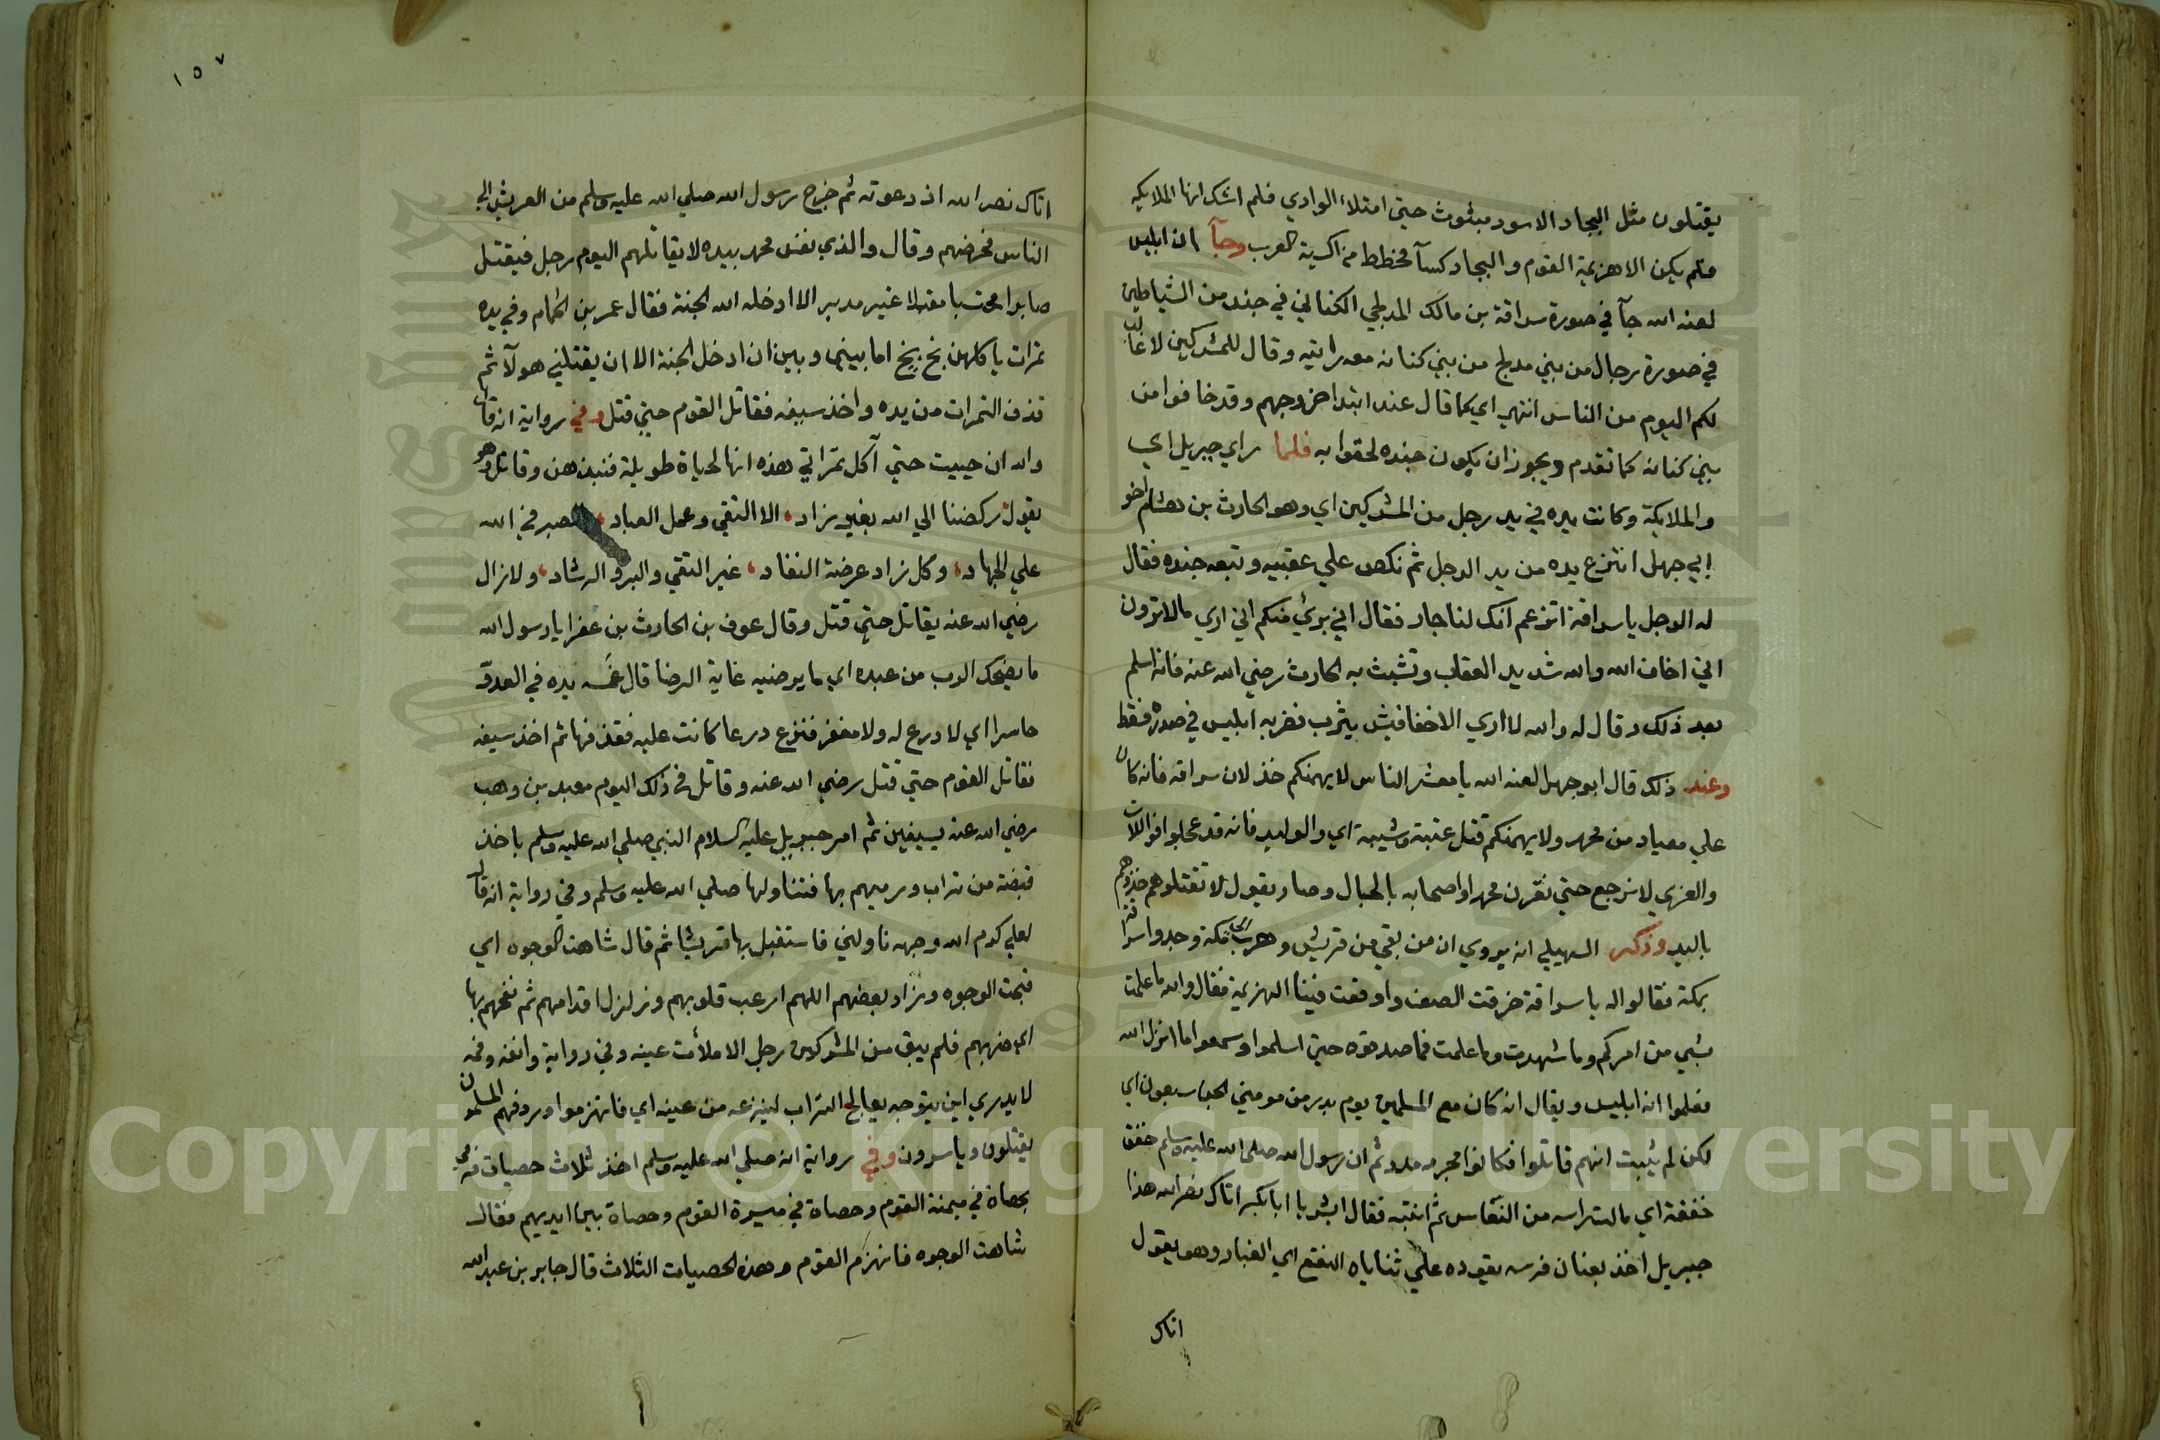 يقتلون مثل البجاد الاسود مبثوث حتي امتلاء الوادي فلم اشك انها الملايكه
فلم يكن الا هزيمة القوم والبجاد كسآ مخطط من اكسية العرب وجآ ان ابليس
لعنه الله جآ في صورة سراقة بن مالك المدلجي الكناني في جند من الشياطين
في صورة رجال من بني مدلج من بني كنانه معه رايته وقال للمشركين لا غالب
لكم اليوم من الناس انتهي اي كما قال عند ابتدا خروجهم وقد خافوا من
بني كنانه كما تقدم ويجوز ان يكون جنده لحقوا به فلما راي جبريل اي
والملايكة وكانت يده في يد رجل من المشركين اي وهو الحارث بن هشام اخو
ابي جهل انتزع يده من يد الرجل ثم نكص علي عقبيه وتبعه جنده فقال
له الرجل ياسراقة اتزعم انك لنا جار فقال اني برئ منكم اني اري مالا ترون
اني اخاف الله والله شديد العقاب وتشبث به الحارث رضي الله عنه فانه اسلم
بعد ذلك وقال له والله لا اري الا خفافيش يثرب فضربه ابليس في صدره فسقط
وعند ذلك قال ابوجهل لعنه الله يا معشر الناس لا يهمنكم خذلان سراقه فانه كان
علي معياد من محمد ولا يهمنكم قتل عتبة وشيبة اي والوليد فانه قد عجلوا فواللات
والعزي لا نرجع حتي نقرن محمدا واصحابه بالحبال وصار يقول لا تقتلوهم خذوهم
باليد وذكر السهيلي انه يروي ان من بقي من قريش وهرب الي مكة وجدوا سراقة
بمكة فقالوا له ياسراقة خرقت الصف واوقعت فينا الهزيمة فقال والله ما علمت
بشي من امركم وما شهدت وما علمت فما صدقوه حتي اسلموا وسمعوا ما انزل الله
فعلموا انه ابليس ويقال انه كان مع المسلمين يوم بدر من مومني الجن سبعون اي
لكن لم يثبت انهم قاتلوا فكانوا مجرد مدد ثم ان رسول الله صلي الله عليه وسلم خفق
خفقة اي مالت راسه من النعاس ثم انتبه فقال ابشر يا ابابكر اتاك نصر الله هذا
جبريل اخذ بعنان فرسه يقوده علي ثناياه النقع اي الغبار وهو يقول
اتاك
١٥٧
اتاك نصر الله اذ دعوته ثم خرج رسول الله صلي الله عليه وسلم من العريش الي
الناس فحرضهم وقال والذي نفس محمد بيده لا يقاتلهم اليوم رجل فيقتل
صابرا محتسبا مقبلا غير مدبر الا ادخله الله الجنة فقال عمر بن الحمام وفي يده
تمرات ياكلهن بخ بخ اما بيني وبين ان ادخل الجنة الا ان يقتلني هولآ ثم
قذف التمرات من يده واخذ سيفه فقاتل القوم حتي قتل وفي رواية انه قال
والله ان حييت حتي آكل تمراتي هذه انها لحياة طويلة فنبذهن وقاتل وهو
يقول ركضنا الي الله بغير زاد الا التقي وعمل المعاد والصبر في الله
علي الجهاد وكل زاد عرضة النفاد غير التقي والبر والرشاد ولا زال
رضي الله عنه يقاتل حتي قتل وقال عوف بن الحارث بن عفرا يا رسول الله
ما يضحك الرب من عبده اي ما يرضيه غاية الرضا قال غمسه يده في العدو
حاسرا اي لا درع له ولا مغفر فنزع درعا كانت عليه فقذفها ثم اخذ سيفه
فقاتل القوم حتي قتل رضي الله عنه وقاتل في ذلك اليوم معبد بن وهب
رضي الله عنه بسيفين ثم امر جبريل عليه السلام النبي صلي الله عليه وسلم باخذ
قبضة من تراب ويرميهم بها فتناولها صلي الله عليه وسلم وفي رواية انه قال
لعلي كرم الله وجهه ناولني فاستقبل بها قريشا ثم قال شاهت الوجوه اي
قبحت الوجوه وزاد بعضهم اللهم ارعب قلوبهم وزلزل اقدامهم ثم نفحهم بها
اي ضربهم فلم يبق من المشركين رجل الا ملأت عينه وفي رواية وانفه وفمه
لا يدري اين يتوجه يعالج التراب لينزعه من عينه اي فانهزموا وردفهم المسلمون
يقتلون وياسرون وفي رواية انه صلي الله عليه وسلم اخذ ثلاث حصيات فرمي
بحصاة في ميمنة القوم وحصاة في ميسرة القوم وحصاة بين ايديهم فقال
شاهت الوجوه فانهزم القوم وهذه الحصيات الثلاث قال جابر بن عبد الله
Copyright © King Saud University